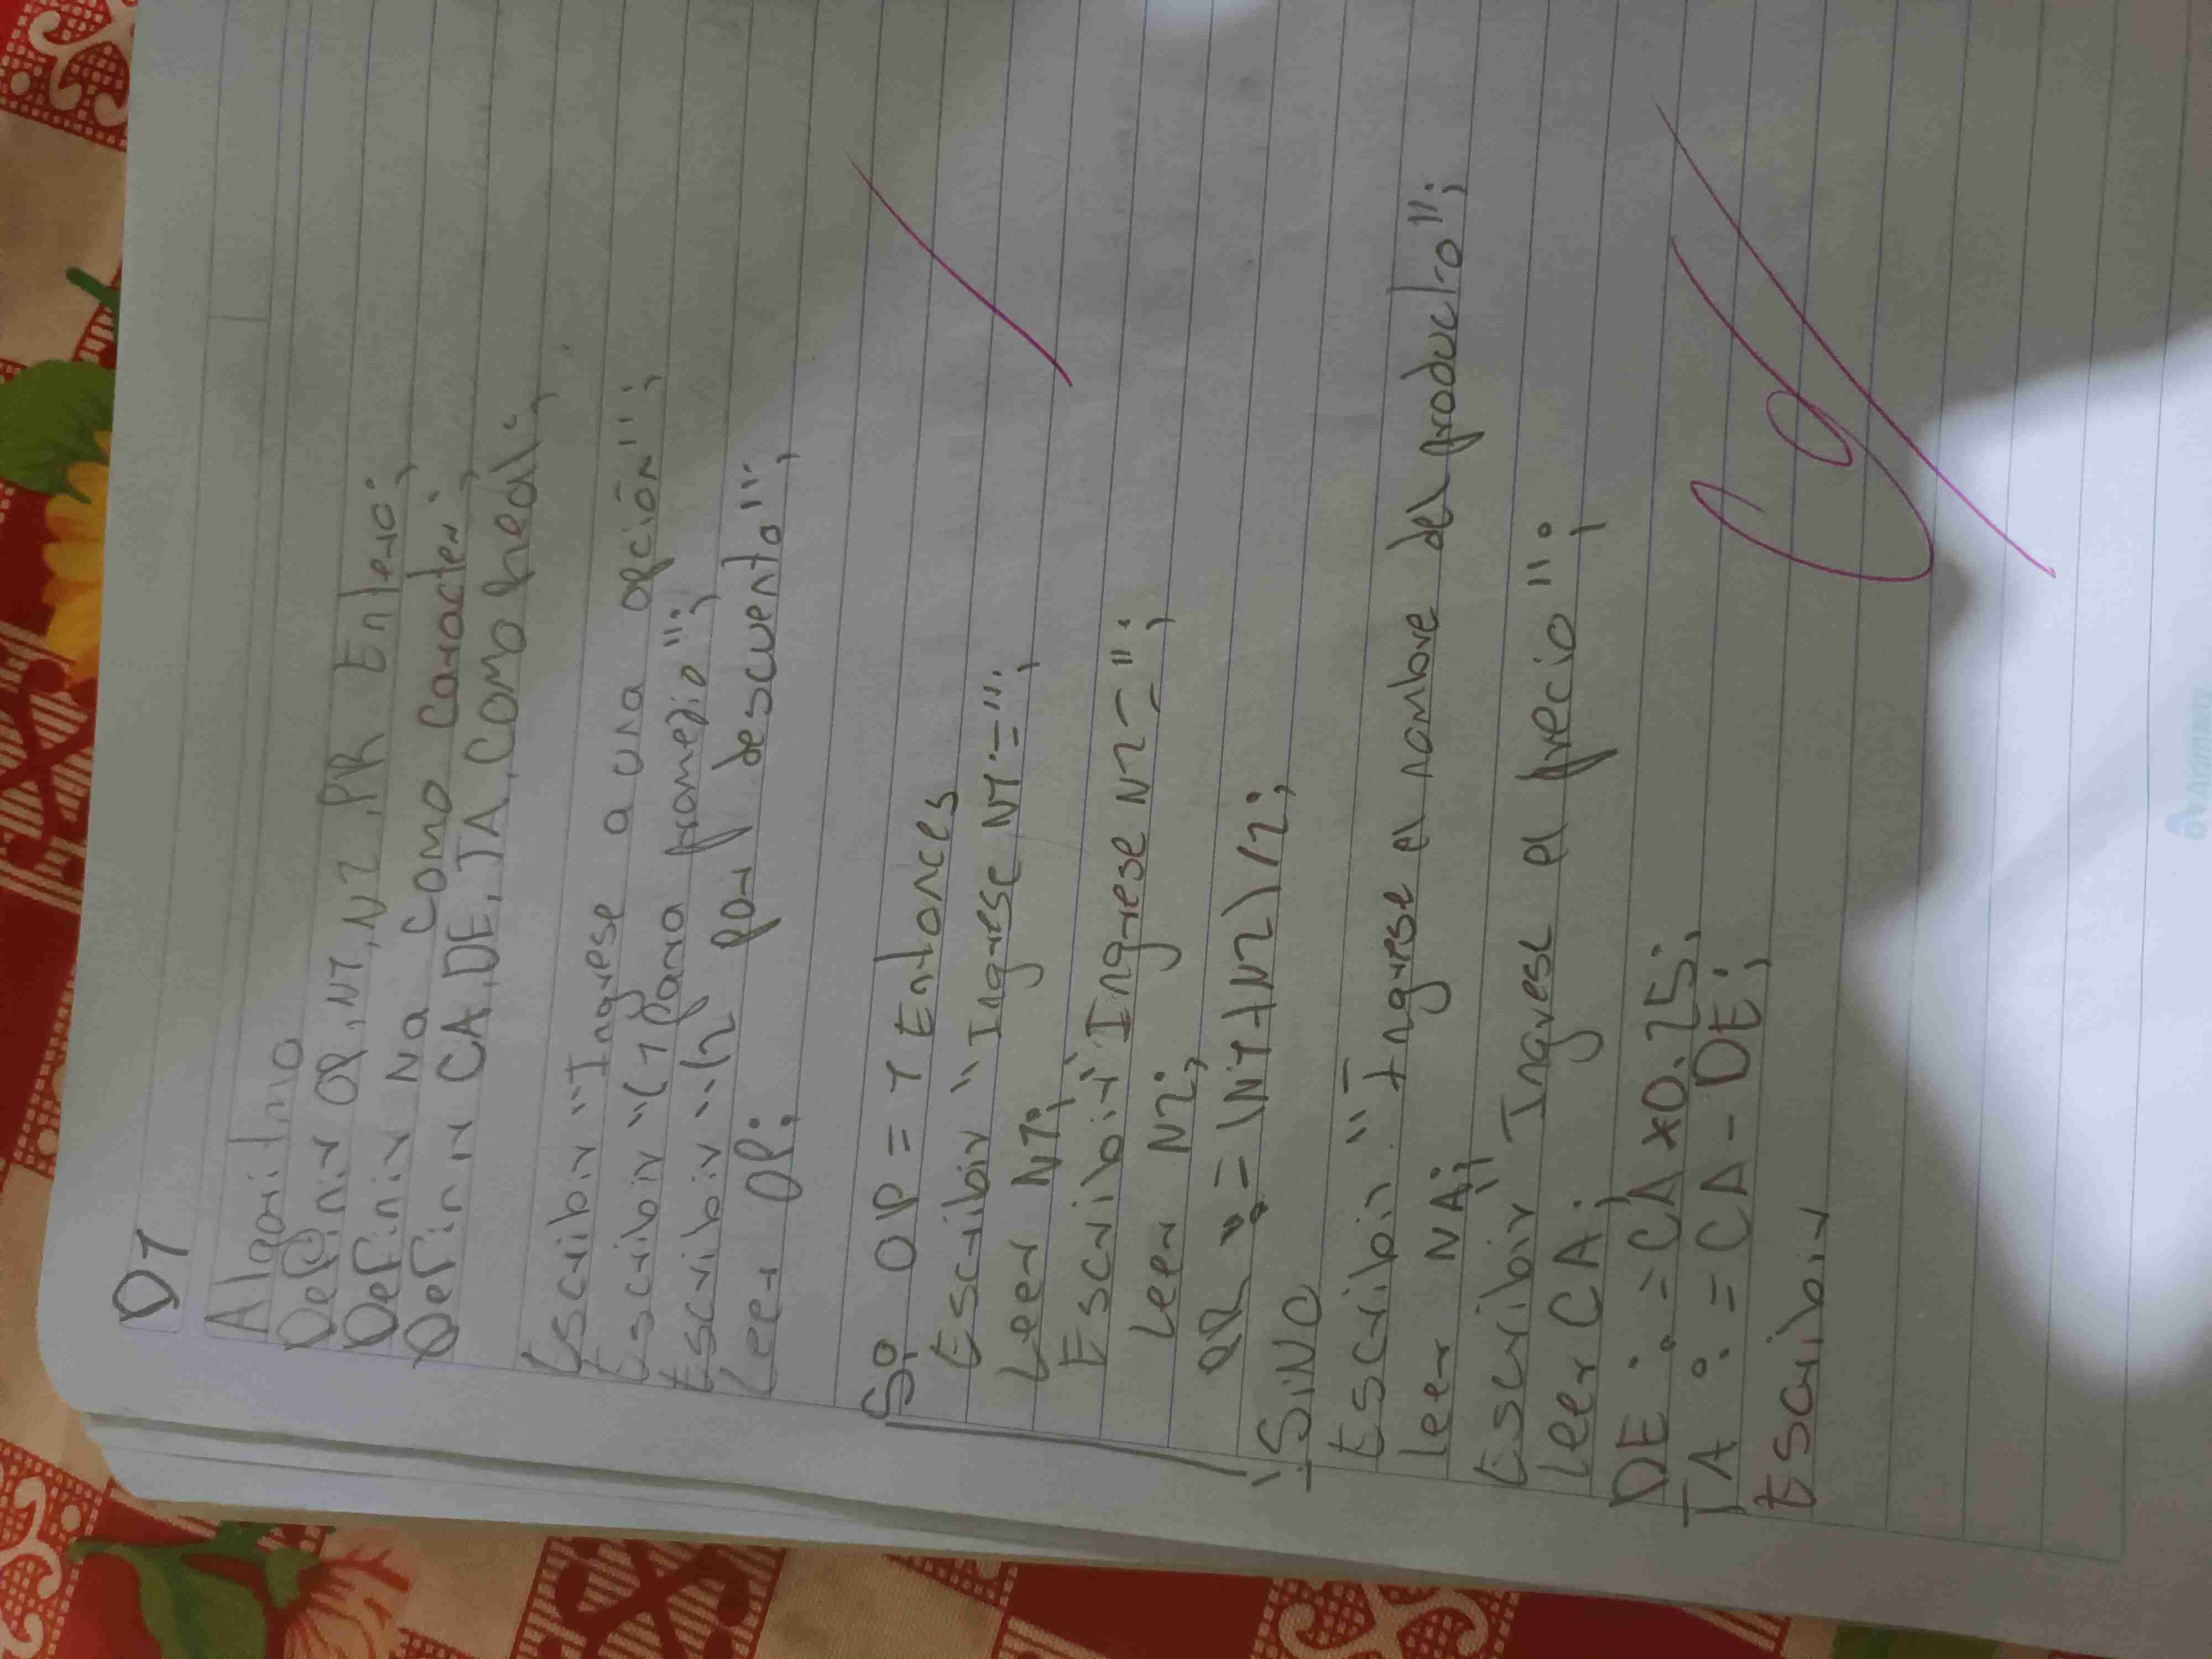 D1
Algoritmo
Definir OP, N1, N2, PR Entero;
Definir Na como Caracter;
Definir CA, DE, TA, Como Real;
Escribir "Ingrese a una opción";
Escribir "(1) para promedio";
Escribir "(2 por descuento";
Leer OP;
Si OP = 1 Entonces
Escribir "Ingrese N1=";
Leer N1;
Escribir "Ingrese N2=";
Leer N2;
PR := (N1+N2)/2;
SiNO
Escribir "Ingrese el nombre del producto";
leer NA;
Escribir "Ingrese el precio";
leer CA;
DE := CA*0.25;
TA := CA - DE;
Escribir